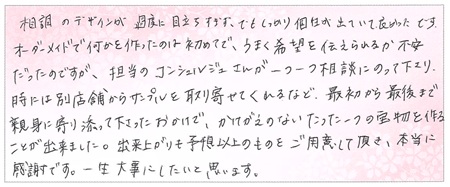 相談のデザインが過度に目立ちすぎず、でもしっかり個性が出ていて良かったです。
オーダーメイドで何かを作ったのは初めてで、うまく希望を伝えられるか不安
だったのですが、担当のコンシェルジュさんが一つ一つ相談にのって下さり、
時には別店舗からサンプルを取り寄せてくれるなど、最初から最後まで
親身に寄り添って下さったおかげで、かけがえのないたった一つの宝物を作る
ことが出来ました。出来上がりも予想以上のものをご用意して頂き、本当に
感謝です。一生大事にしたいと思います。